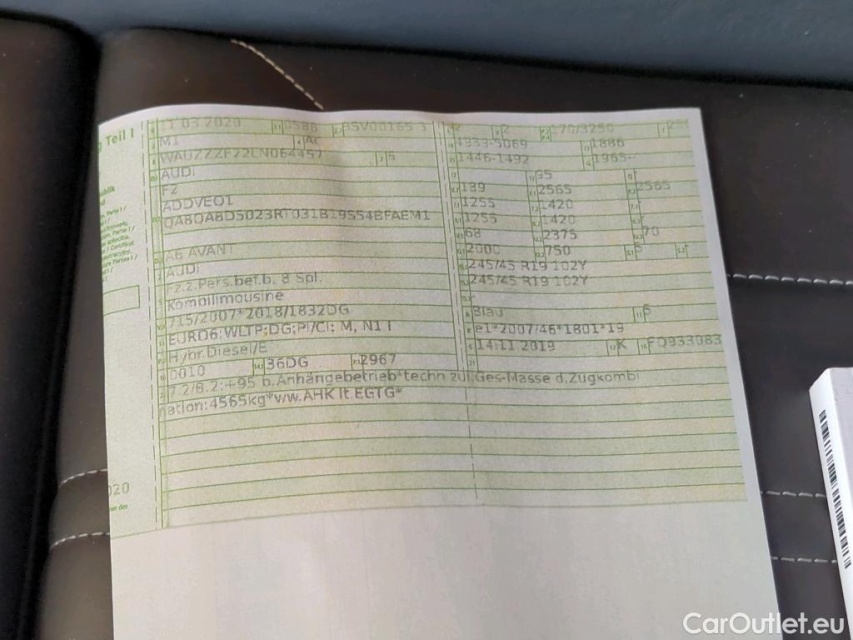 Teil I
11.03.2020 0588 2 170/3250
M1 AC 4333-5069 1886
WAUZZZF22LN064457 5 1446-1492 1965--
AUDI 95
F2 139 2565 2565
ADDVEO1 1255 1420
QA8QA8D5023RT031B19554BFAEM1 1255 1420
68 2375 70
A6 AVANT 2000 750 5
AUDI 245/45 R19 102Y
Fz.z.Pers.bef.b. 8 Spl. 245/45 R19 102Y
Kombilimousine
715/2007*2018/1832DG Blau 5
EURO6;WLTP;DG;PI/CI: M, N1 I e1*2007/46*1801*19
H/br.Diesel/E 14.11.2019 K FO933083
0010 36DG 2967
7.2/8.2:+95 b.Anhängebetrieb*techn zul.Ges-Masse d.Zugkombi
nation:4565kg*v/w.AHK lt EGTG*
020
CarOutlet.eu